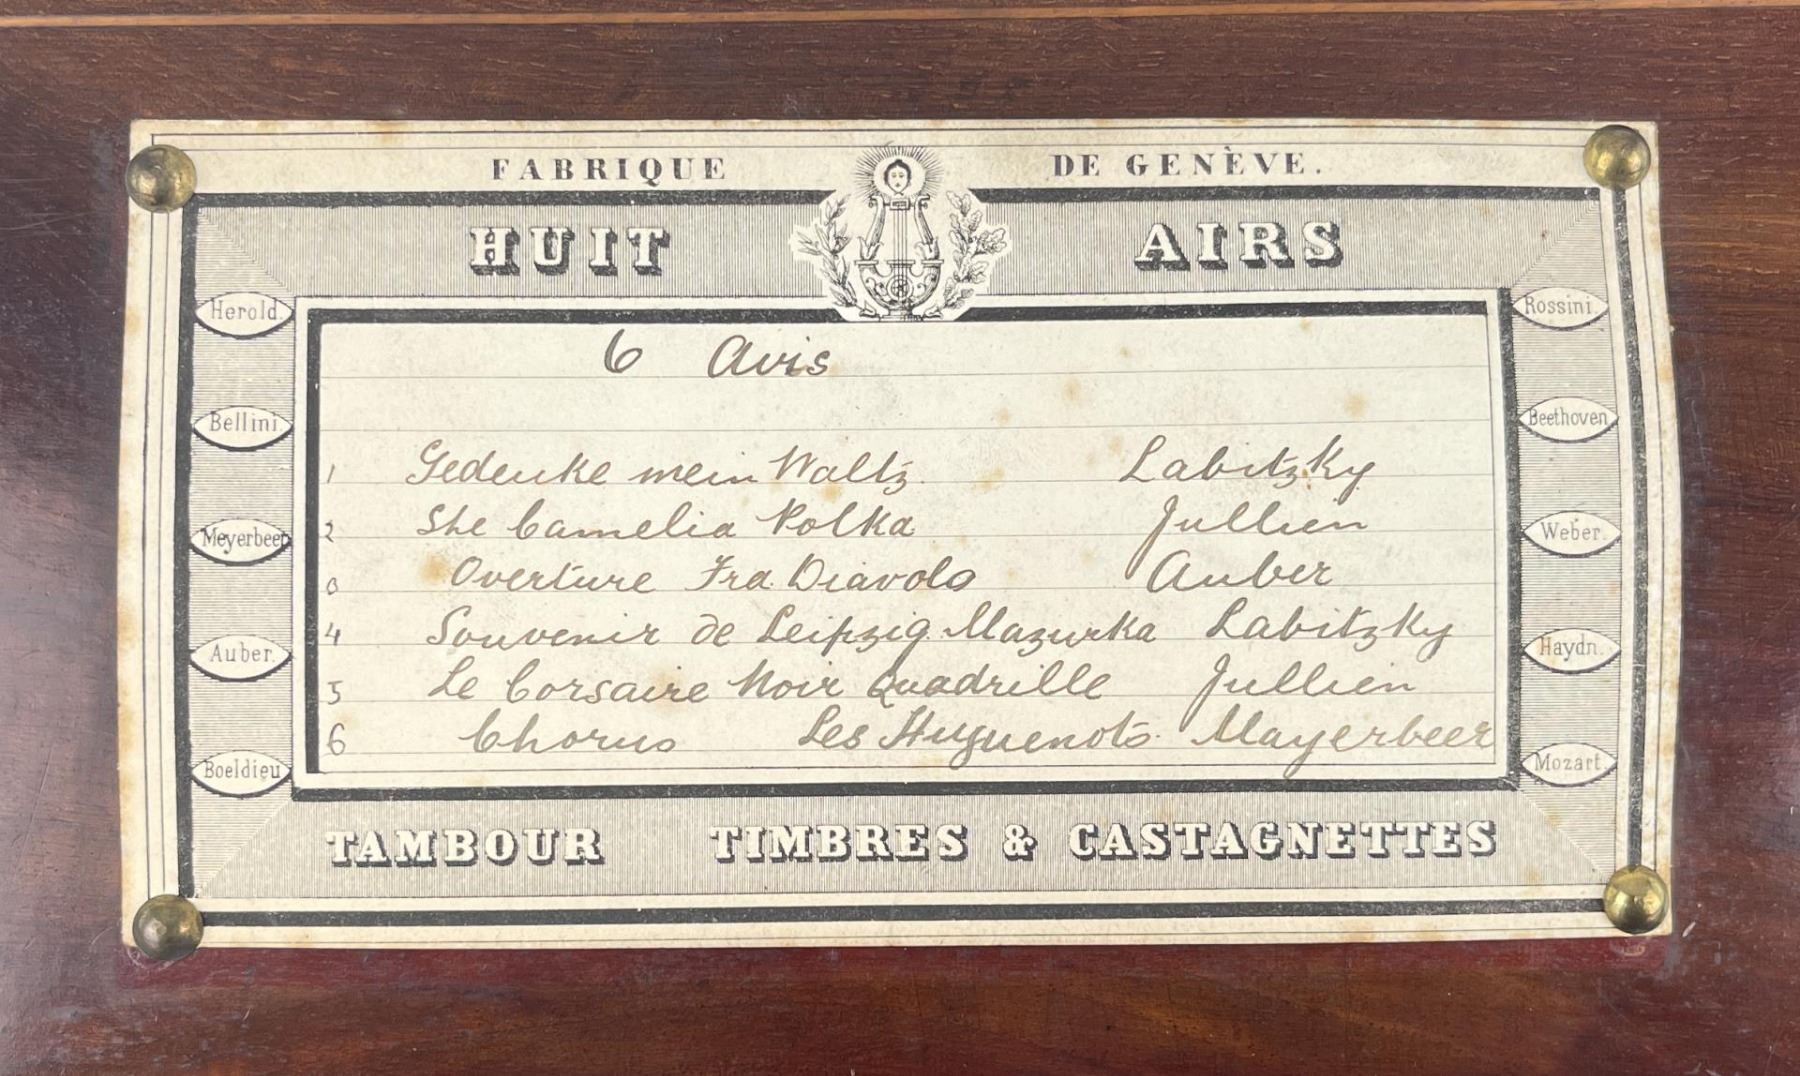 FABRIQUE DE GENÈVE.
HUIT AIRS
Herold.
Bellini
Meyerbeer
Auber.
Boeldieu
6 Avis
1 Gedenke mein Waltz. Labitzky
2 The Camelia Polka Jullien
3 Overture Fra Diavolo Auber
4 Souvenir de Leipzig Mazurka Labitzky
5 Le Corsaire Noir Quadrille Jullien
6 Chorus Les Huguenots. Mayerbeer
Rossini.
Beethoven
Weber.
Haydn.
Mozart.
TAMBOUR TIMBRES & CASTAGNETTES